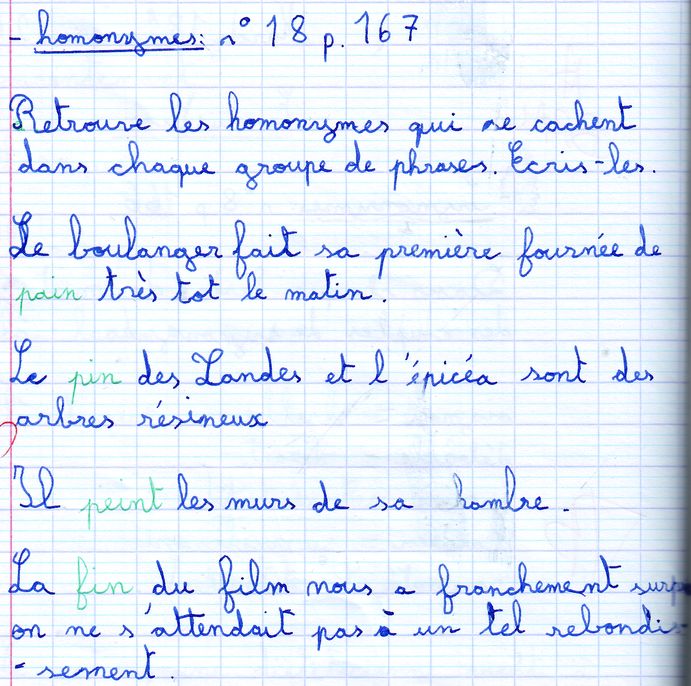 - homonymes: n° 18 p. 167
Retrouve les homonymes qui se cachent
dans chaque groupe de phrases. Ecris-les.
Le boulanger fait sa première fournée de
pain très tot le matin.
Le pin des Landes et l'épicéa sont des
arbres résineux
Il peint les murs de sa hambre.
La fin du film nous a franchement surp
on ne s'attendait pas à un tel rebondis-
-sement.